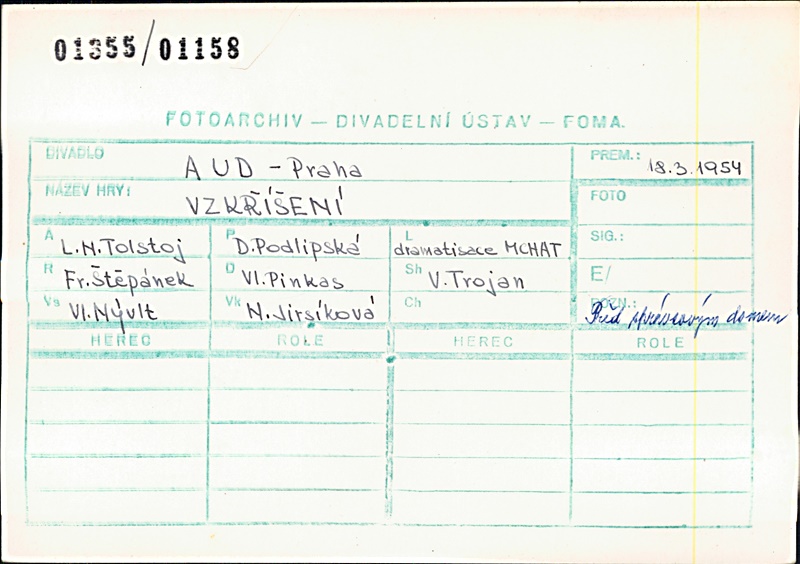 01355/01158
FOTOARCHIV — DIVADELNÍ ÚSTAV — FOMA.
DIVADLO AUD - Praha PREM.: 18.3.1954
NÁZEV HRY: VZKŘÍŠENÍ FOTO
A L.N.Tolstoj P D.Podlipská L dramatisace MCHAT SIG.:
R Fr.Štěpánek D Vl.Pinkas Sh V.Trojan E/
Vs Vl.Nývlt Vk N.Jirsíková Ch POZN.: Před domem
HEREC ROLE HEREC ROLE